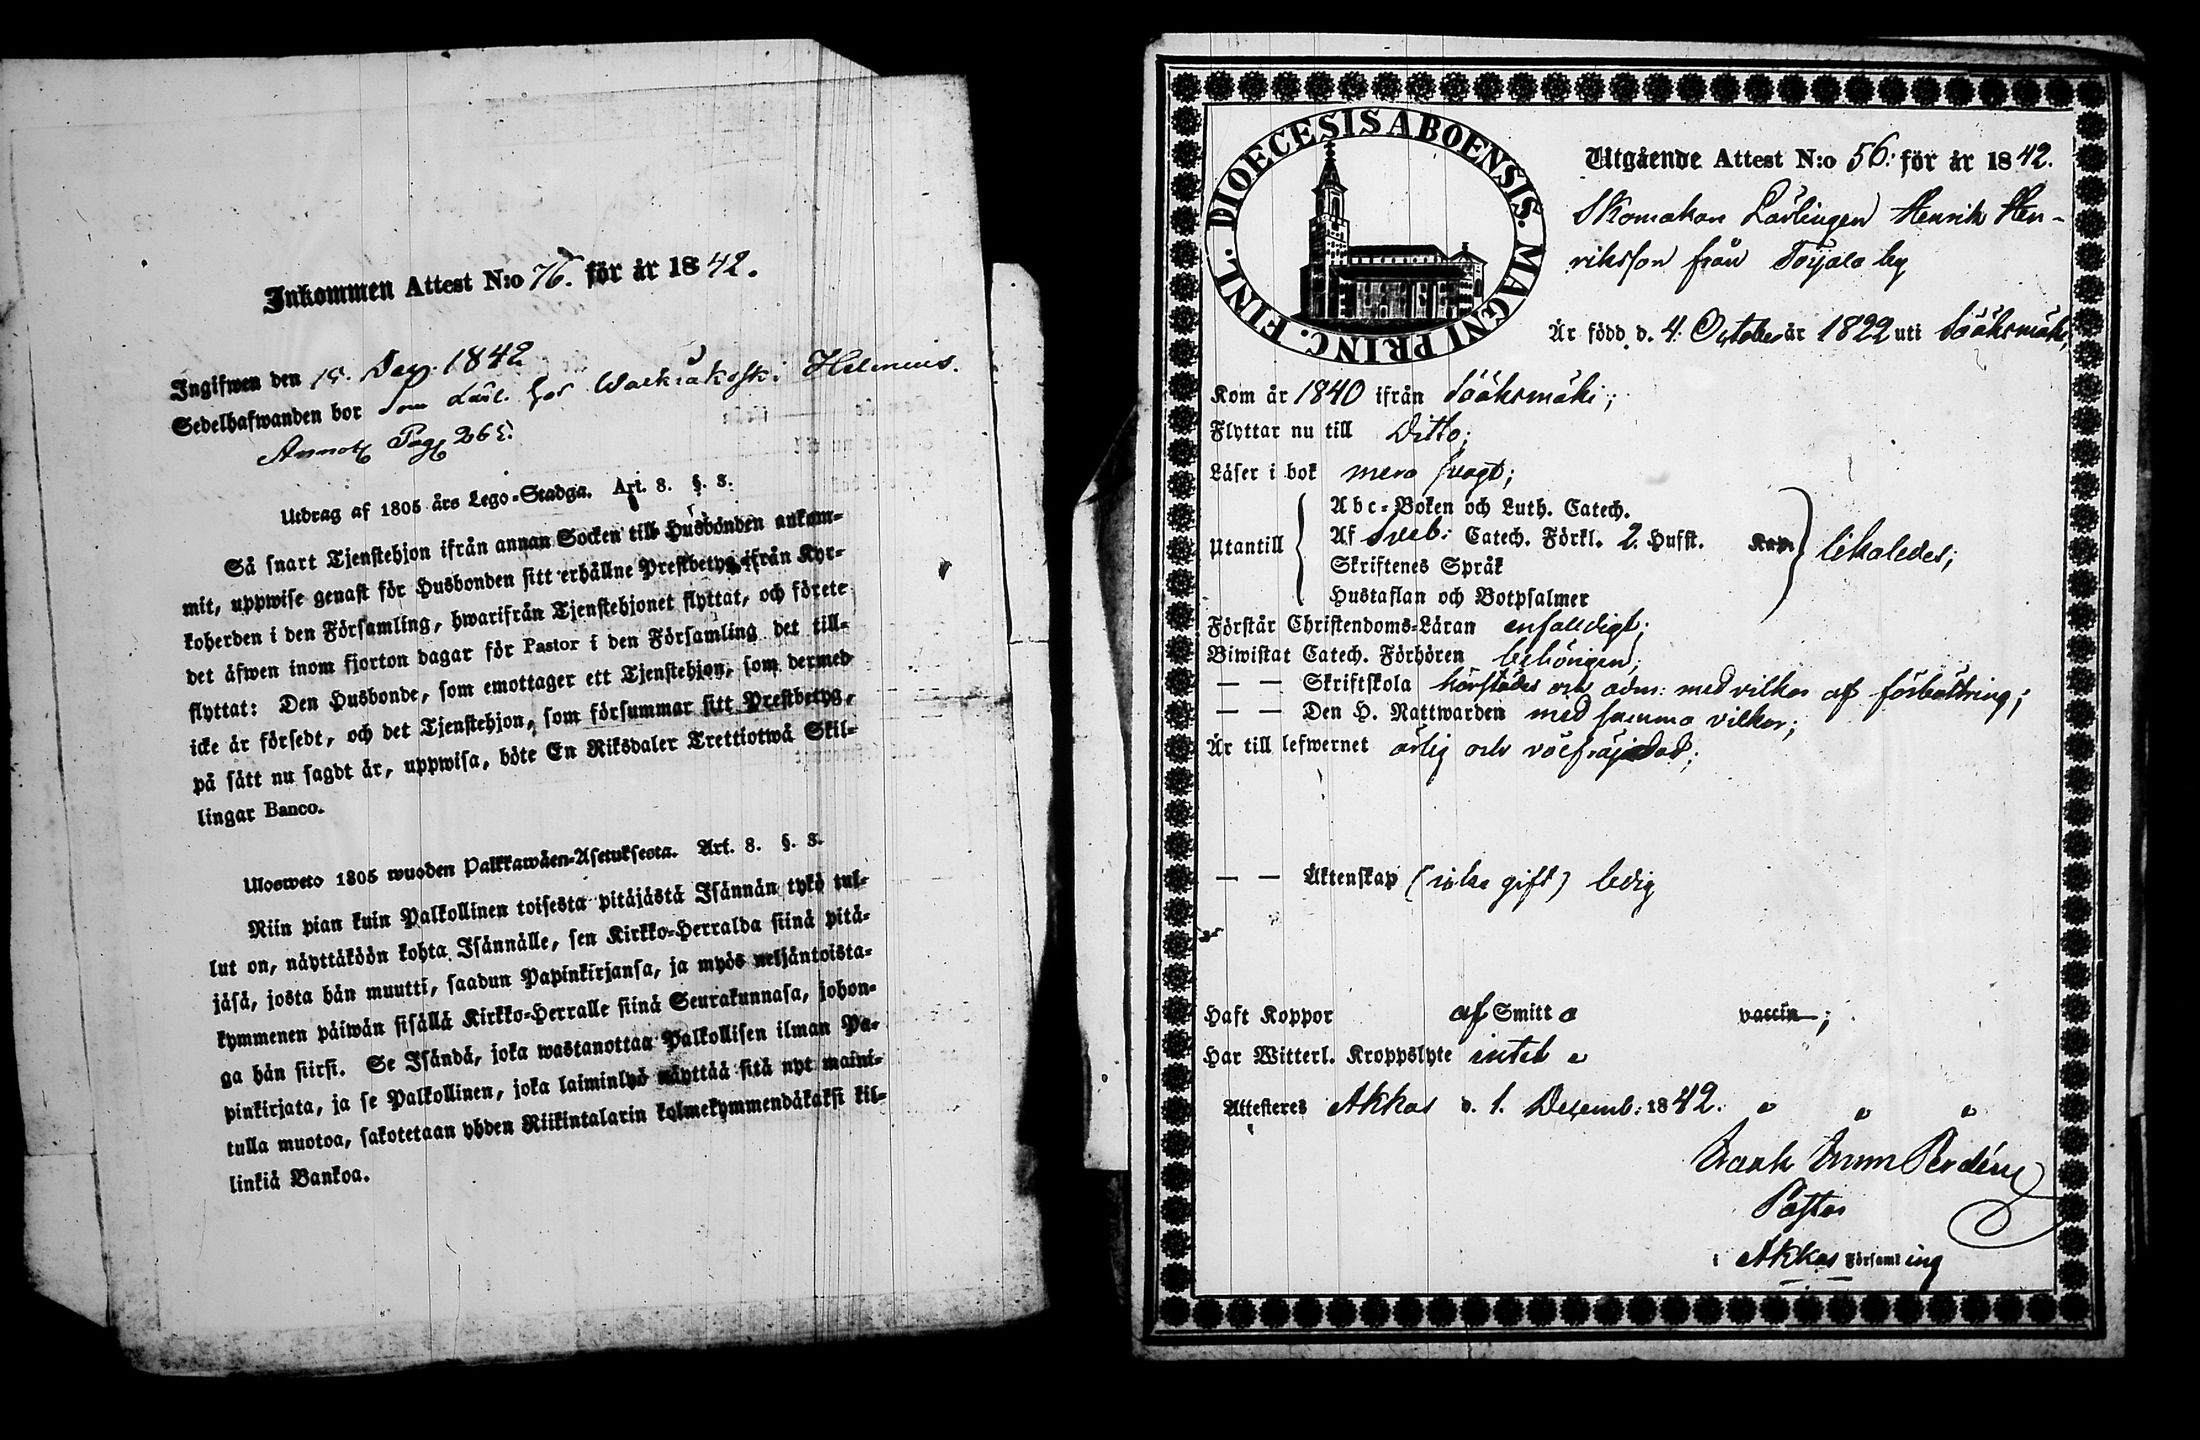 Inkommen Attest N:o 76. för år 1842.
Ingifwen den 15. Dec. 1842
Sedelhafwanden bor Som Lärl. hos Walkiakoski Helenius.
Annot. Pag. 265.
Utdrag af 1805 års Lego-Stadga. Art. 8. §. 3.
Så snart Tjenstehjon ifrån annan Socken till Husbonden ankom-
mit, uppwise genast för Husbonden sitt erhållne Prestbetyg ifrån Kyr-
koherden i den Församling, hwarifrån Tjenstehjonet flyttat, och förete
det äfwen inom fjorton dagar för Pastor i den Församling det till-
flyttat: Den Husbonde, som emottager ett Tjenstehjon, som dermed
icke är försedt, och det Tjenstehjon, som försummar sitt Prestbetyg,
på sätt nu sagdt är, uppwisa, böte En Riksdaler Trettiotwå Skil-
lingar Banco.
Ulosweto 1805 wuoden Palkkawäen-Asetuksesta. Art. 8. §. 3.
Niin pian kuin Palkollinen toisesta pitäjästä Isännän tykö tul-
lut on, näyttäköön kohta Isännälle, sen Kirkko-Herralda siinä pitä-
jäsä, josta hän muutti, saadun Papinkirjansa, ja myös neljäntoista-
kymmenen päiwän sisällä Kirkko-Herralle siinä Seurakunnasa, johon-
ga hän siirsi. Se Isändä, joka wastanottaa Palkollisen ilman Pa-
pinkirjata, ja se Palkollinen, joka laiminlyö näyttää sitä nyt maini-
tulla muotoa, sakotetaan yhden Riikintalarin kolmekymmendäkaksi kil-
linkiä Bankoa.
DIOECESIS ABOENSIS. MAGNI PRINC. FINL.
Utgående Attest N:o 56. för år 1842.
Skomakare Lärlingen Henrik Hen-
riksson från Toijala by
Är född d. 4. October år 1822 uti Sääksmäki,
Kom år 1840 ifrån Sääksmäki;
Flyttar nu till Ditto;
Läser i bok mera svagt;
Utantill
Abc-Boken och Luth. Catech.
Af Sveb: Catech. Förkl. 2. Hufst. Kap.
Skriftenes Språk
Hustaflan och Botpsalmer
likaledes;
Förstår Christendoms-Läran enfaldigt;
Biwistat Catech. Förhören behörigen;
— — Skriftskola härstädes och adm: med vilkor af förbättring;
— — Den H. Nattwarden med samma vilkor;
Är till lefwernet ärlig och välfräjdad;
— — Äktenskap (icke gift) ledig
Haft Koppor af Smitta vaccin;
Har Witterl. Kroppslyte intet
Attesteres Akkas d. 1. Decemb: 1842.
Pastor
i Akkas Församling